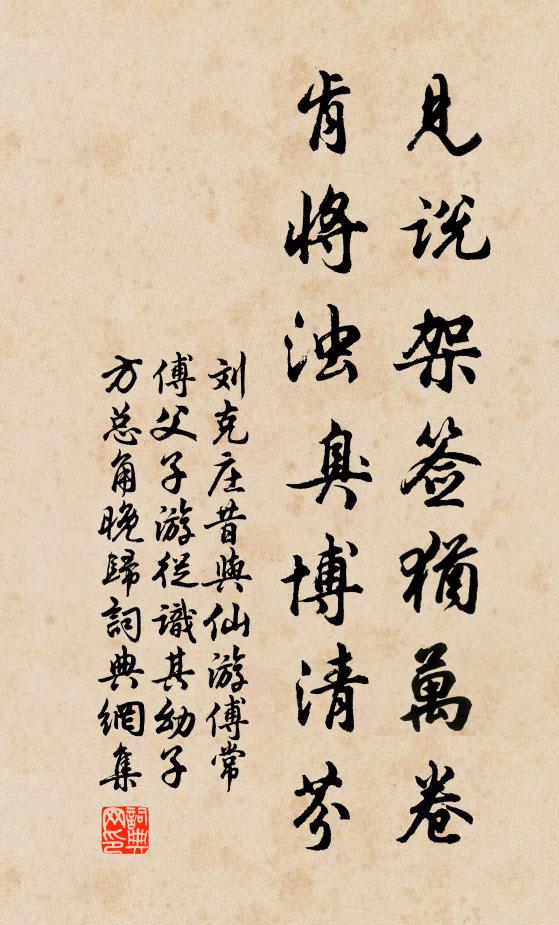 见说架签犹萬卷
肯将浊臭博清芬
刘克庄昔與仙游傅常
傅父子游從識其幼子
方总角晚歸詞典網集
詞典网印